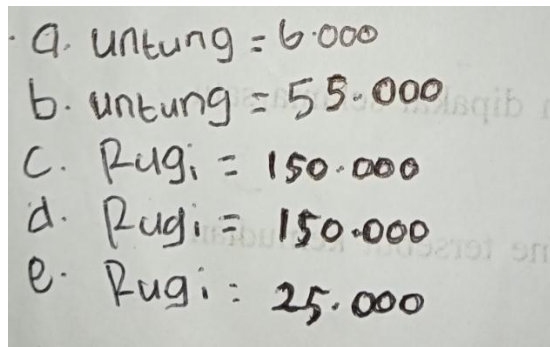 a. untung = 6.000
b. untung = 55.000
C. Rugi = 150.000
d. Rugi = 150.000
e. Rugi = 25.000